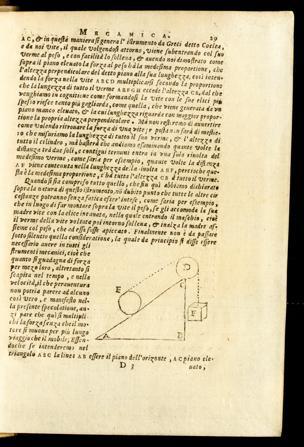 MECANICA. 29
AC, & in questa maniera si genera l'istrumento da Greci detto Coclea,
e da noi Vite, il quale volgendosi attorno, viene subentrando col suo
Verme al peso, e con facilità lo solleva, & avendo noi dimostrato come
sopra il piano elevato la forza al peso hà la medesima proportione, che
l'altezza perpendicolare del detto piano alla sua lunghezza, così
la forza nella vite
che la lunghezza di tutto il Verme eccede l'altezza CB, dal che
venghiamo in cognitione come formandosi la vite con le sue elici più
spesse riesce tanto più gagliarda, come quella, che viene generata da un
piano manco elevato, e la cui lunghezza riguarda con maggior propor-
tione la propria altezza perpendicolare. Mà non resteremo di avvertire
come volendo ritrovare la forza di una vite
tutto il cilindro, mà basterà che andiamo esaminando quante volte la
distanza trà due soli, e contigui termini entra in una sola rivolta del
medesimo verme, come saria per esempio, quante volte la distanza
AF vien contenuta nella lunghezza della
sta la medesima proportione, che hà tutta l'altezza CB à tutto il Verme.
Quando si sia compreso tutto quello, che fin quì abbiamo dichiarato
sopra la natura di questo istrumento, nò dubito punto che tutte le altre
potranno senza fatica
che in luogo di far montare sopra la vite il peso,
madre vite con la elice incavata, nella quale entrando il maschio, cioè
il verme della vite voltata poi intorno solleva, & inalza la madre
sieme col peso, che ad essa fosse appiccato. Finalmente non è da passare
sotto silentio quella consideratione, la quale da principio si disse essere
necessario avere in tutti gli
strumenti mecanici, cioè che
quanto si guadagna di forza
per mezo loro, altrettanto si
scapita nel tempo, e nella
velocità, il che peraventura
non potria parere ad alcuno
così vero, e manifesto nel-
la presente speculatione, an-
zi pare che quì si multipli-
chi la forza senza che il mo-
tore si muova per più lungo
viaggio che il mobile,
dochè se intenderemo nel
triangolo ABC la linea AB essere il piano dell'orizonte, AC piano ele-
D 3 vato,
D
E
F
C
A
B